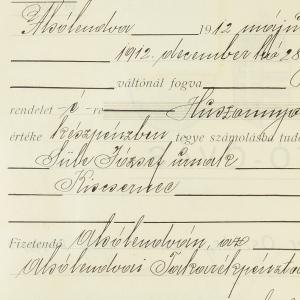 Alsólendva 1912 május
1912. december hó 28
váltónál fogva
rendelet -é- re Huszonnyo
értéke készpénzben tegye számolásba tudó
Süle József úrnak
Kiscsernec
Fizetendő Alsólendván, az
Alsólendvai Takarékpénzta